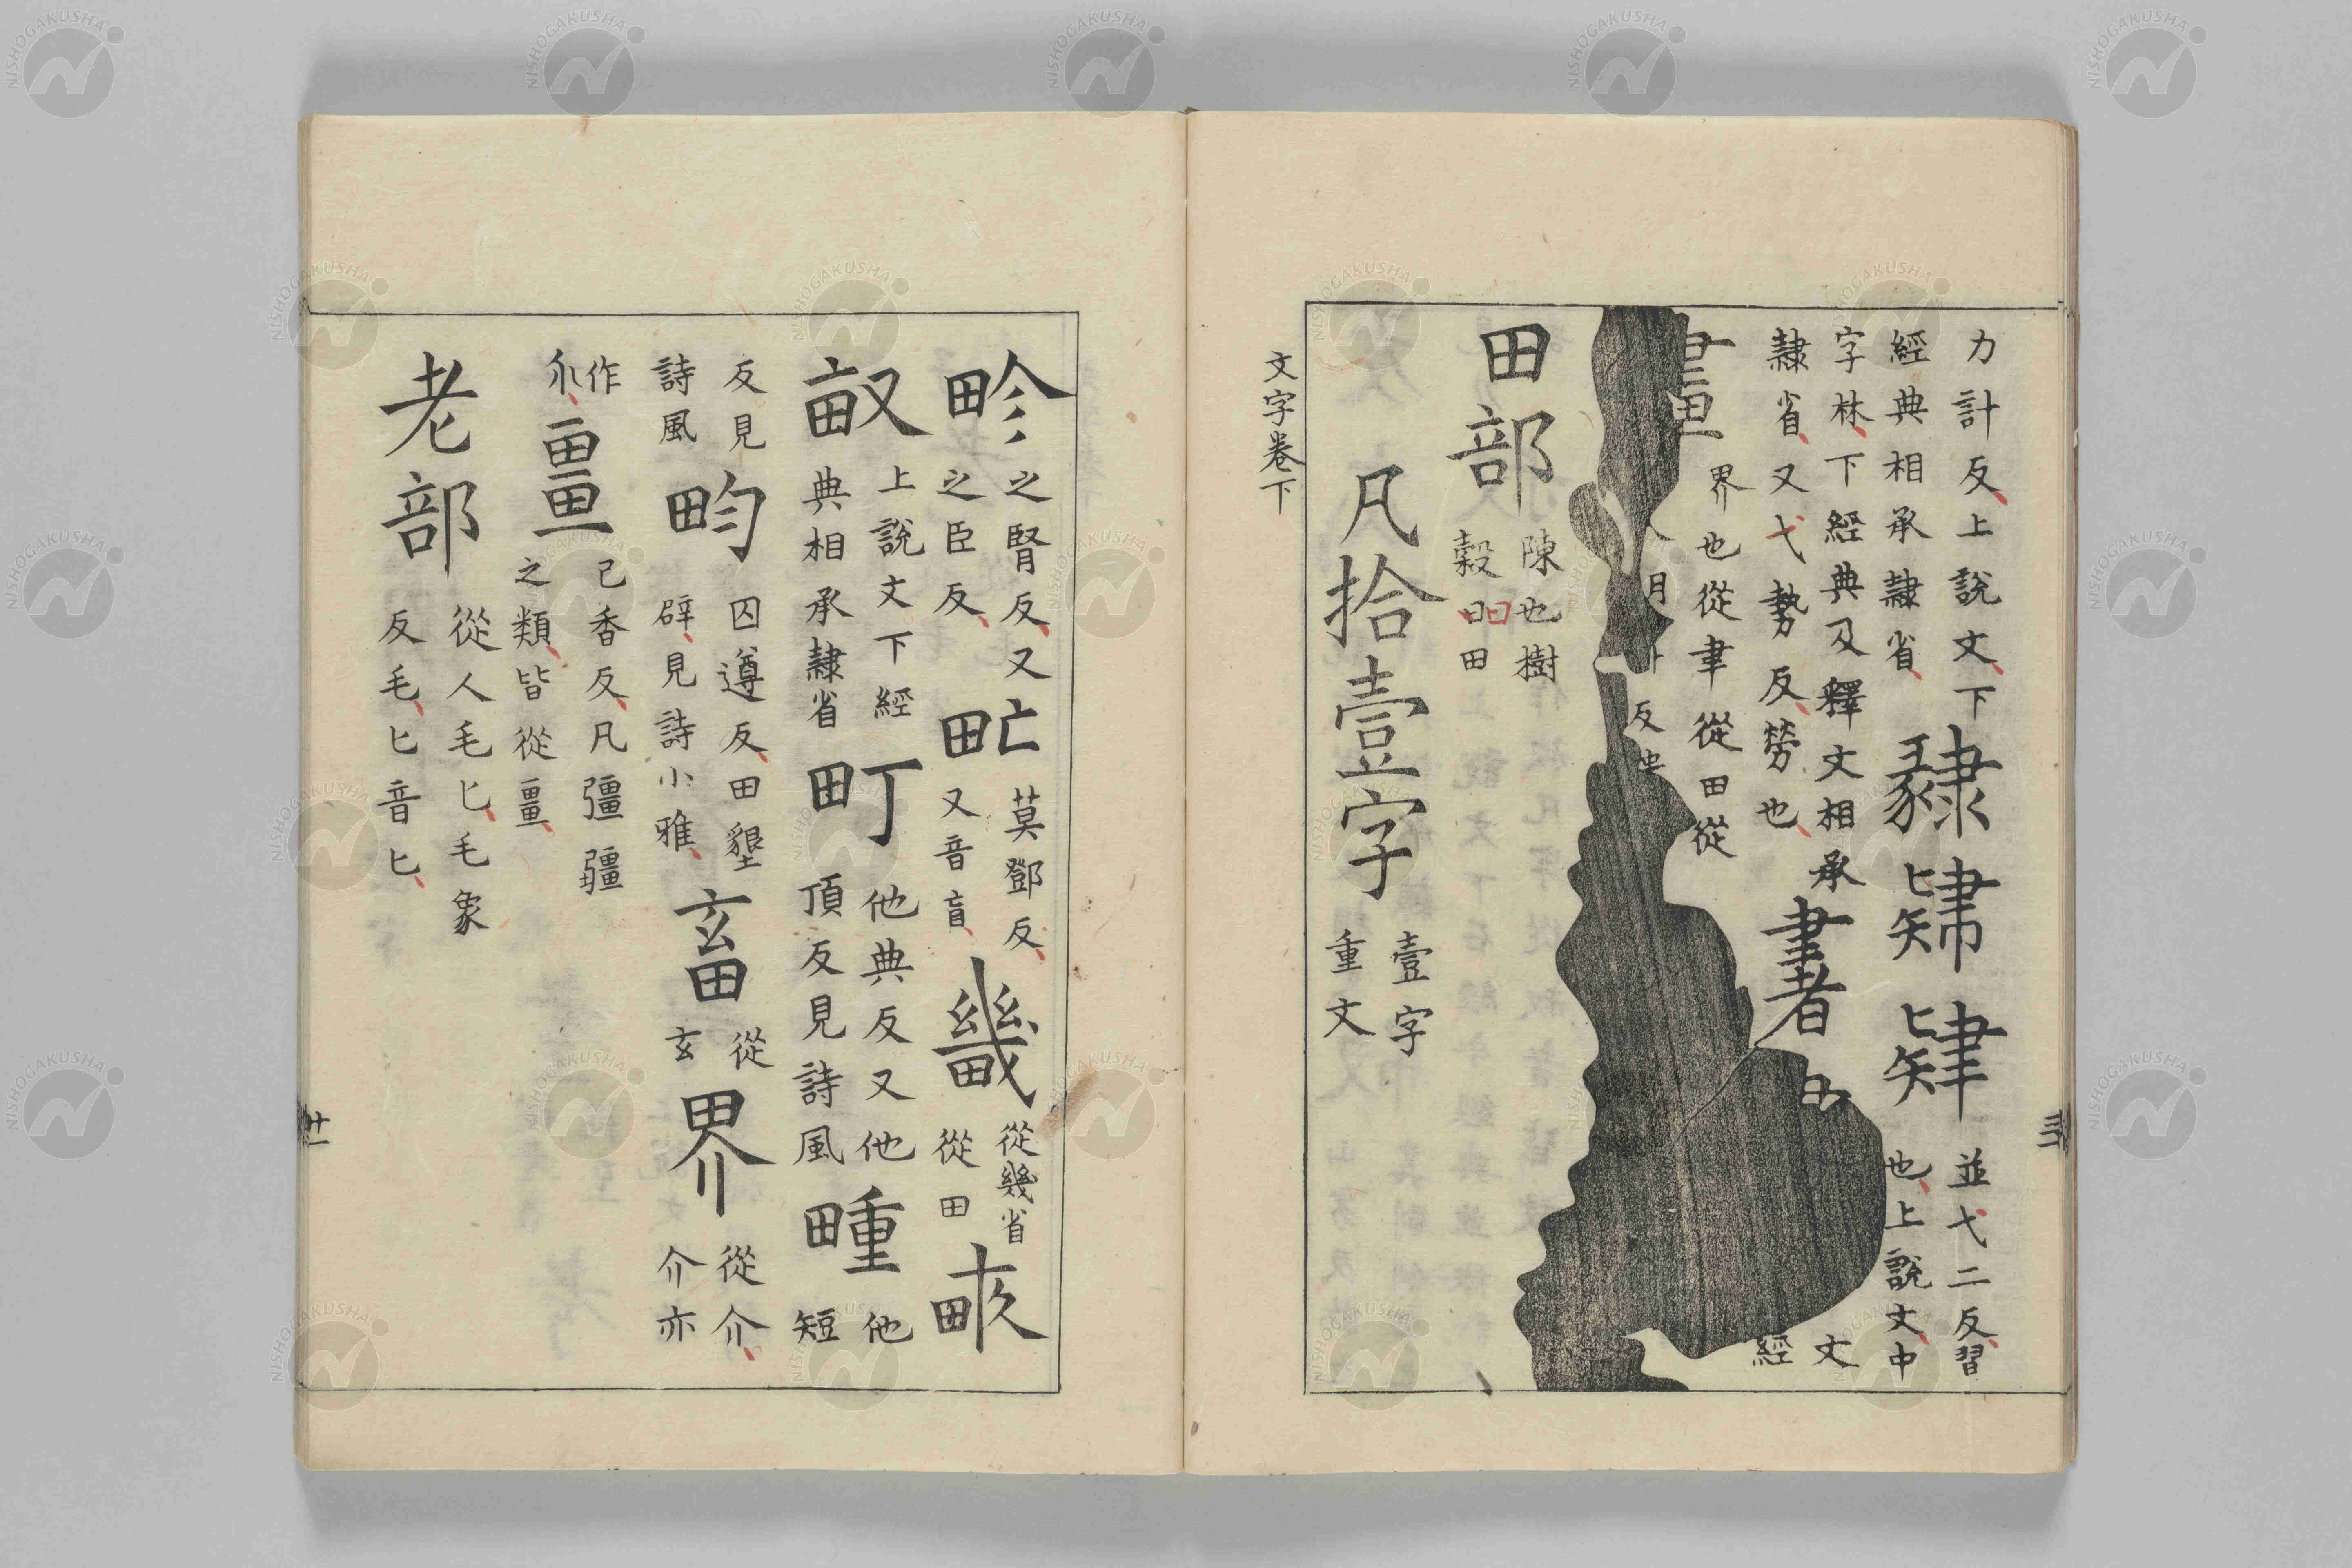 力計反上說文下
經典相承隷省
肄 肄
並弋二反習
也上說文中
字林下經典及釋文相承
隷省又弋勢反勞也
書
文
經
畫
界也從聿從田從
反
田部
陳也樹
穀曰田
曰
凡拾壹字
壹字
重文
文字卷下
畛
之腎反又
之臣反
甿
莫鄧反
又音盲
畿
從幾省
從田
畞
上說文下經
典相承隷省
町
他典反又他
頂反見詩風
畽
他
短
反見
詩風
畇
囚遵反田墾
辟見詩小雅
畜
從
玄
界
從介
介亦
作
畺
己香反凡彊疆
之類皆從畺
老部
從人毛匕毛象
反毛匕音匕
廿一
NISHOGAKUSHA